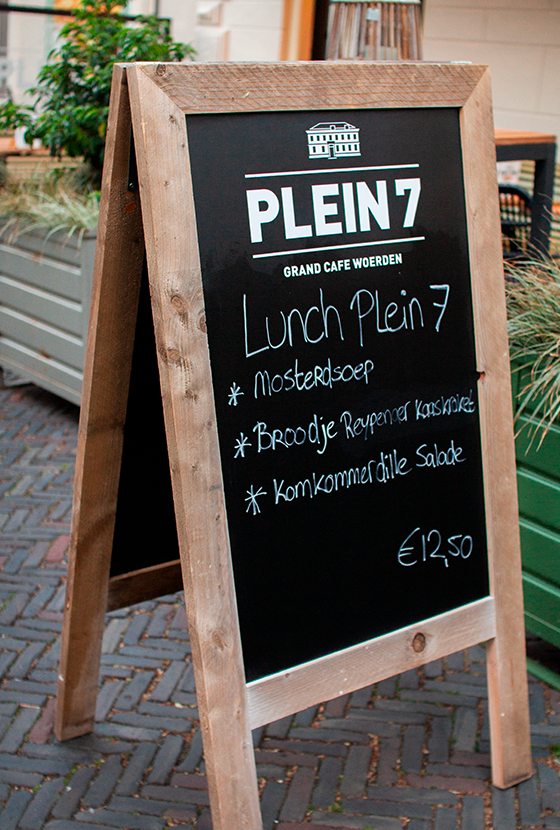 PLEIN 7
GRAND CAFE WOERDEN
Lunch Plein 7
* Mosterdsoep
* Broodje Reypenaer Kaaskroket
* Komkommerdille Salade
€12,50